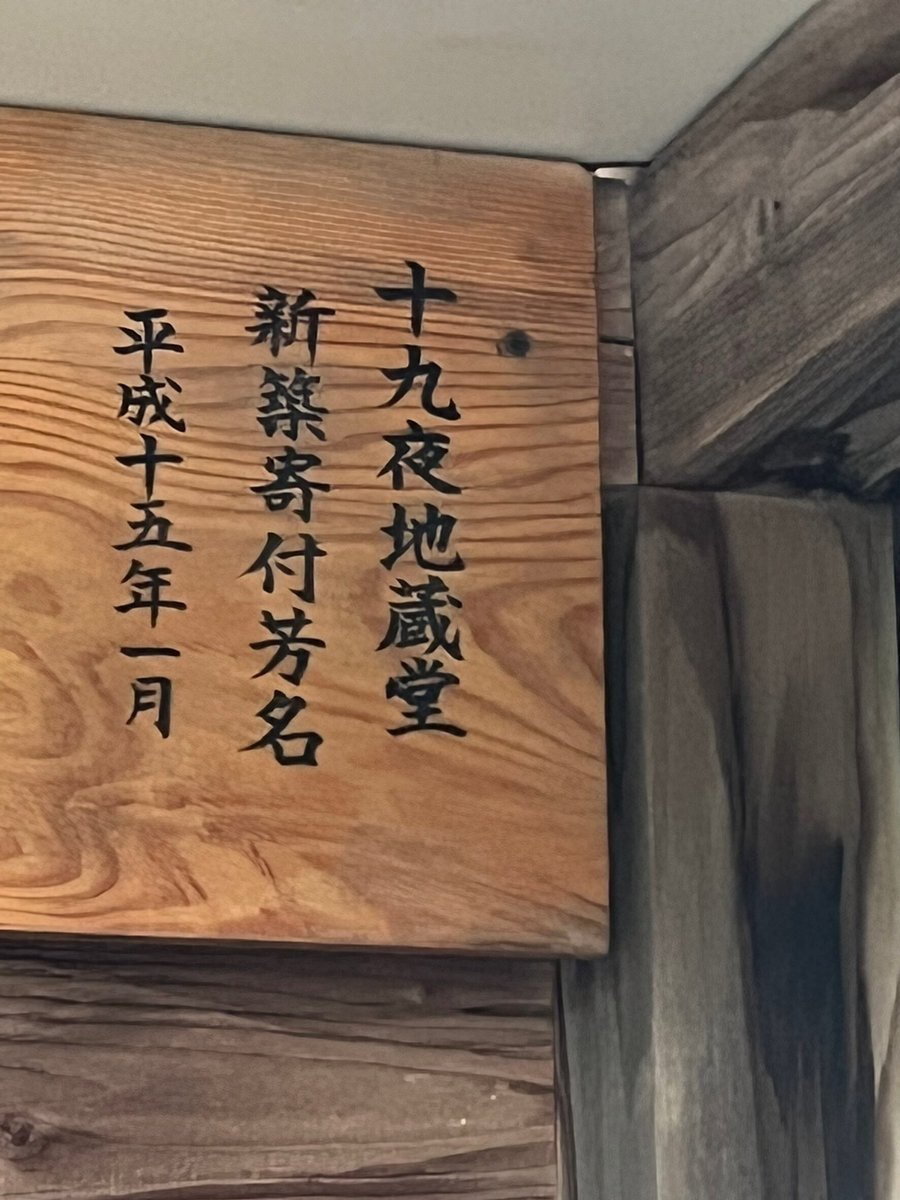 十九夜地蔵堂
新築寄付芳名
平成十五年一月